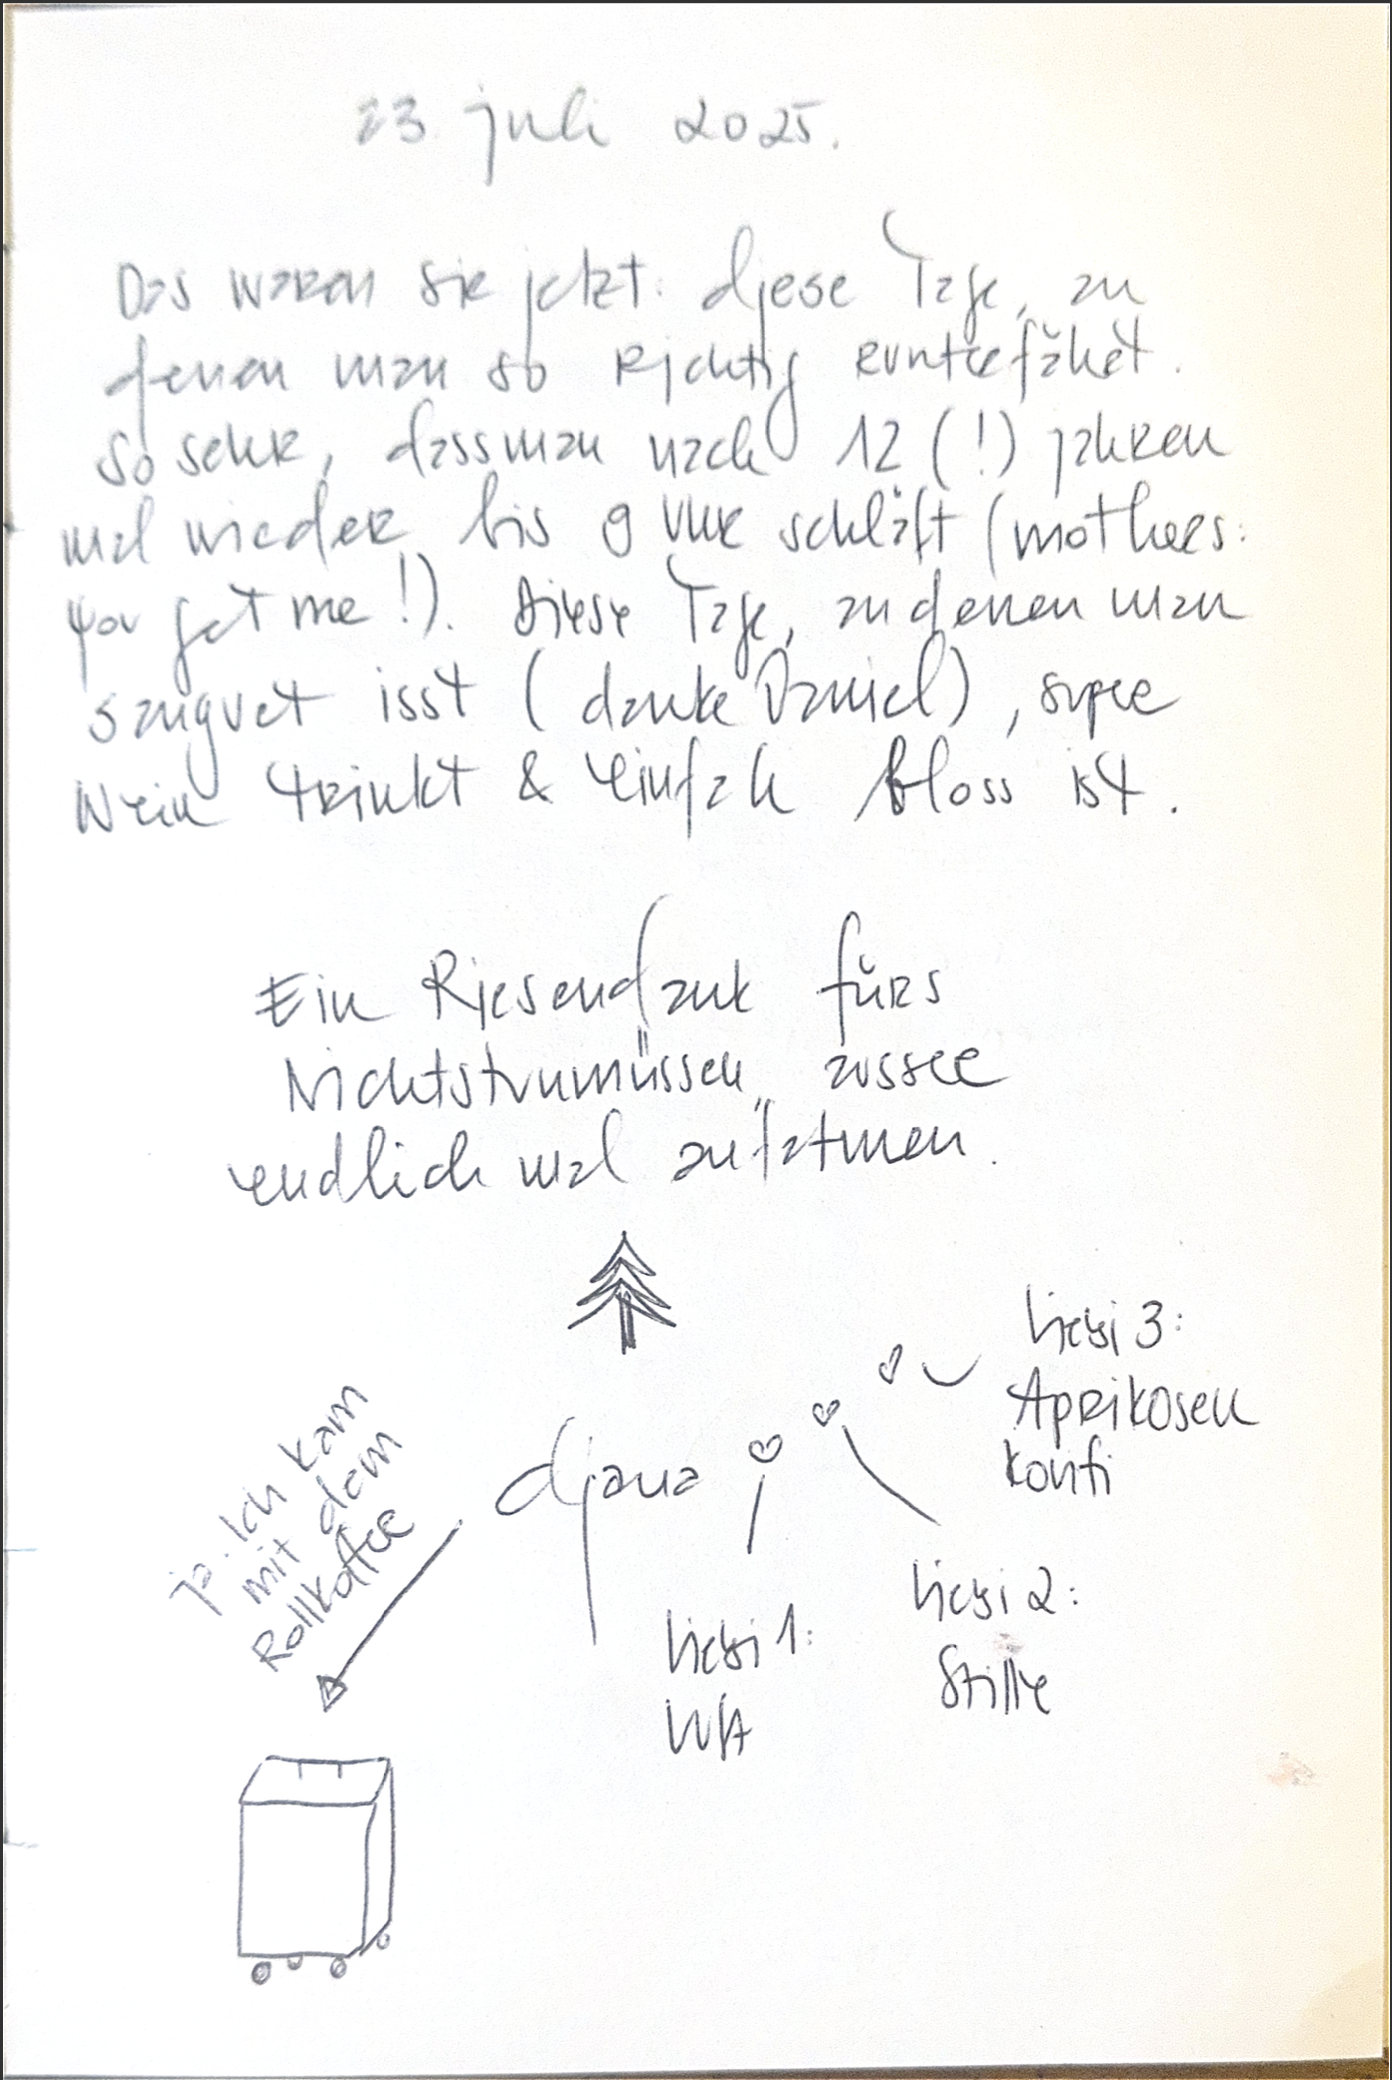 23. juli 2025.
Das waren sie jetzt: diese Tage, an
denen man so richtig runterfährt.
So sehr, dass man nach 12 (!) jahren
mal wieder bis 9 Uhr schläft (mothers:
you get me!). Diese Tage, an denen man
saugut isst (danke Daniel), super
Wein trinkt & einfah bloss ist.
Ein Riesendank fürs
Nichtstunmüssen, ausser
endlich mal aufatmen.
djana
ja. Ich kam
mit dem
Rollkoffer
Liebi 1:
Liebi 2:
Stille
Liebi 3:
Aprikosen
konfi